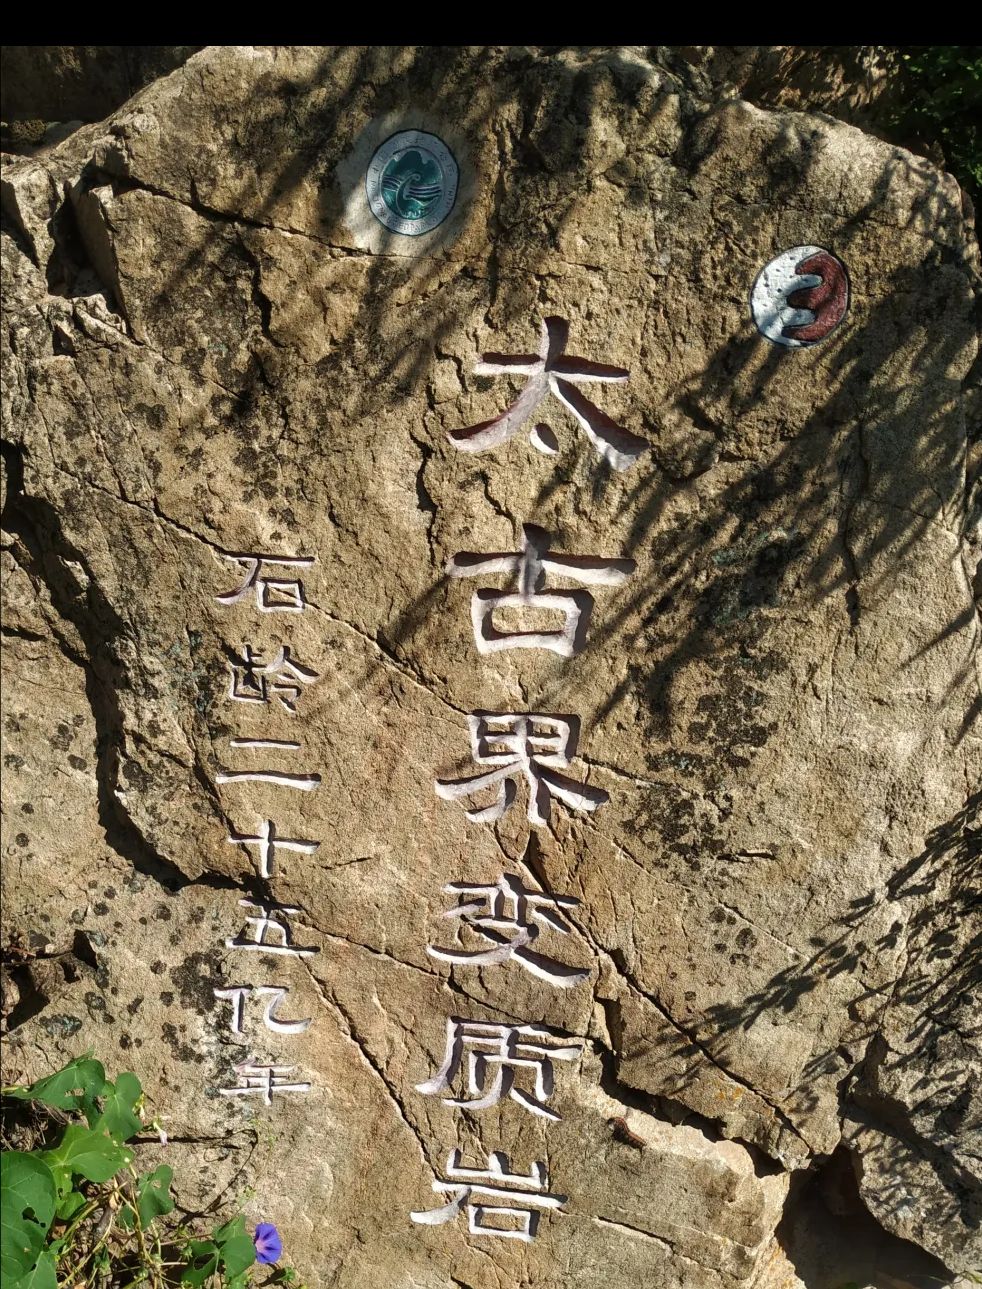 太古界变质岩
石龄二十五亿年